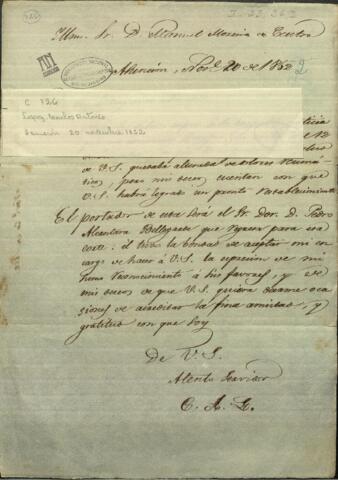 Illmo. Sr. D. Manuel Moreira de Castro
Asuncion, Nov.e 20 de 1852
2
C 126
Lopez, Carlos Antonio
Asunción 20 noviembre 1852
de V.S. quedaba
mis deseos cuentan con que
V.S. habrá logrado un pronto restablecimiento
El portador de esta será el Sr. Dor. D. Pedro
Alcantara Bellegarde que regresa para esa
corte: él tiene la bondad de aceptar mi en
cargo de hacer á V.S. la expresion de mi
reconocimiento á sus favores, y de
mis deseos de que V.S. quiera darme oca
siones de acreditar la fina amistad, y
gratitud con que soy
De V.S.
Atento Servidor
C. A. L.